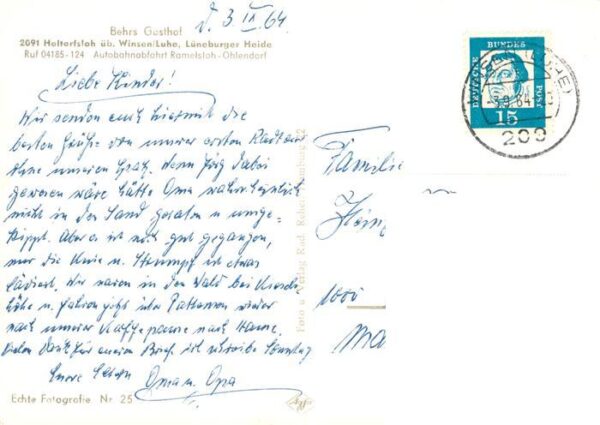 Behrs Gasthof
d. 3. IX. 64.
2091 Holtorfsloh üb. Winsen/Luhe, Lüneburger Heide
Ruf 04185-124 Autobahnabfahrt Ramelsloh-Ohlendorf
Liebe Kinder!
Wir senden euch hiermit die
besten Grüße von unserer ersten Radtour
ohne unseren Spatz. denn Jörg dabei
gewesen wäre hätte Oma wahrscheinlich
nicht in den Sand geraten u. umge=
kippt. Aber es ist noch gut gegangen,
nur die Knie u. Strumpf ist etwas
lädiert. Wir waren in den Wald bei
höhe u. fahren jetzt über Pattensen wieder
nach unserer Kaffepause nach Hause.
Vielen Dank für eueren Brief. ich schreibe Sonntag
Eure lieben Oma u. Opa
Echte Fotografie Nr. 25
Foto u. Verlag Rud. Reher Hamburg
Agfa
DEUTSCHE BUNDES POST
15
3.9.64
209
Familie
Heinz
1000